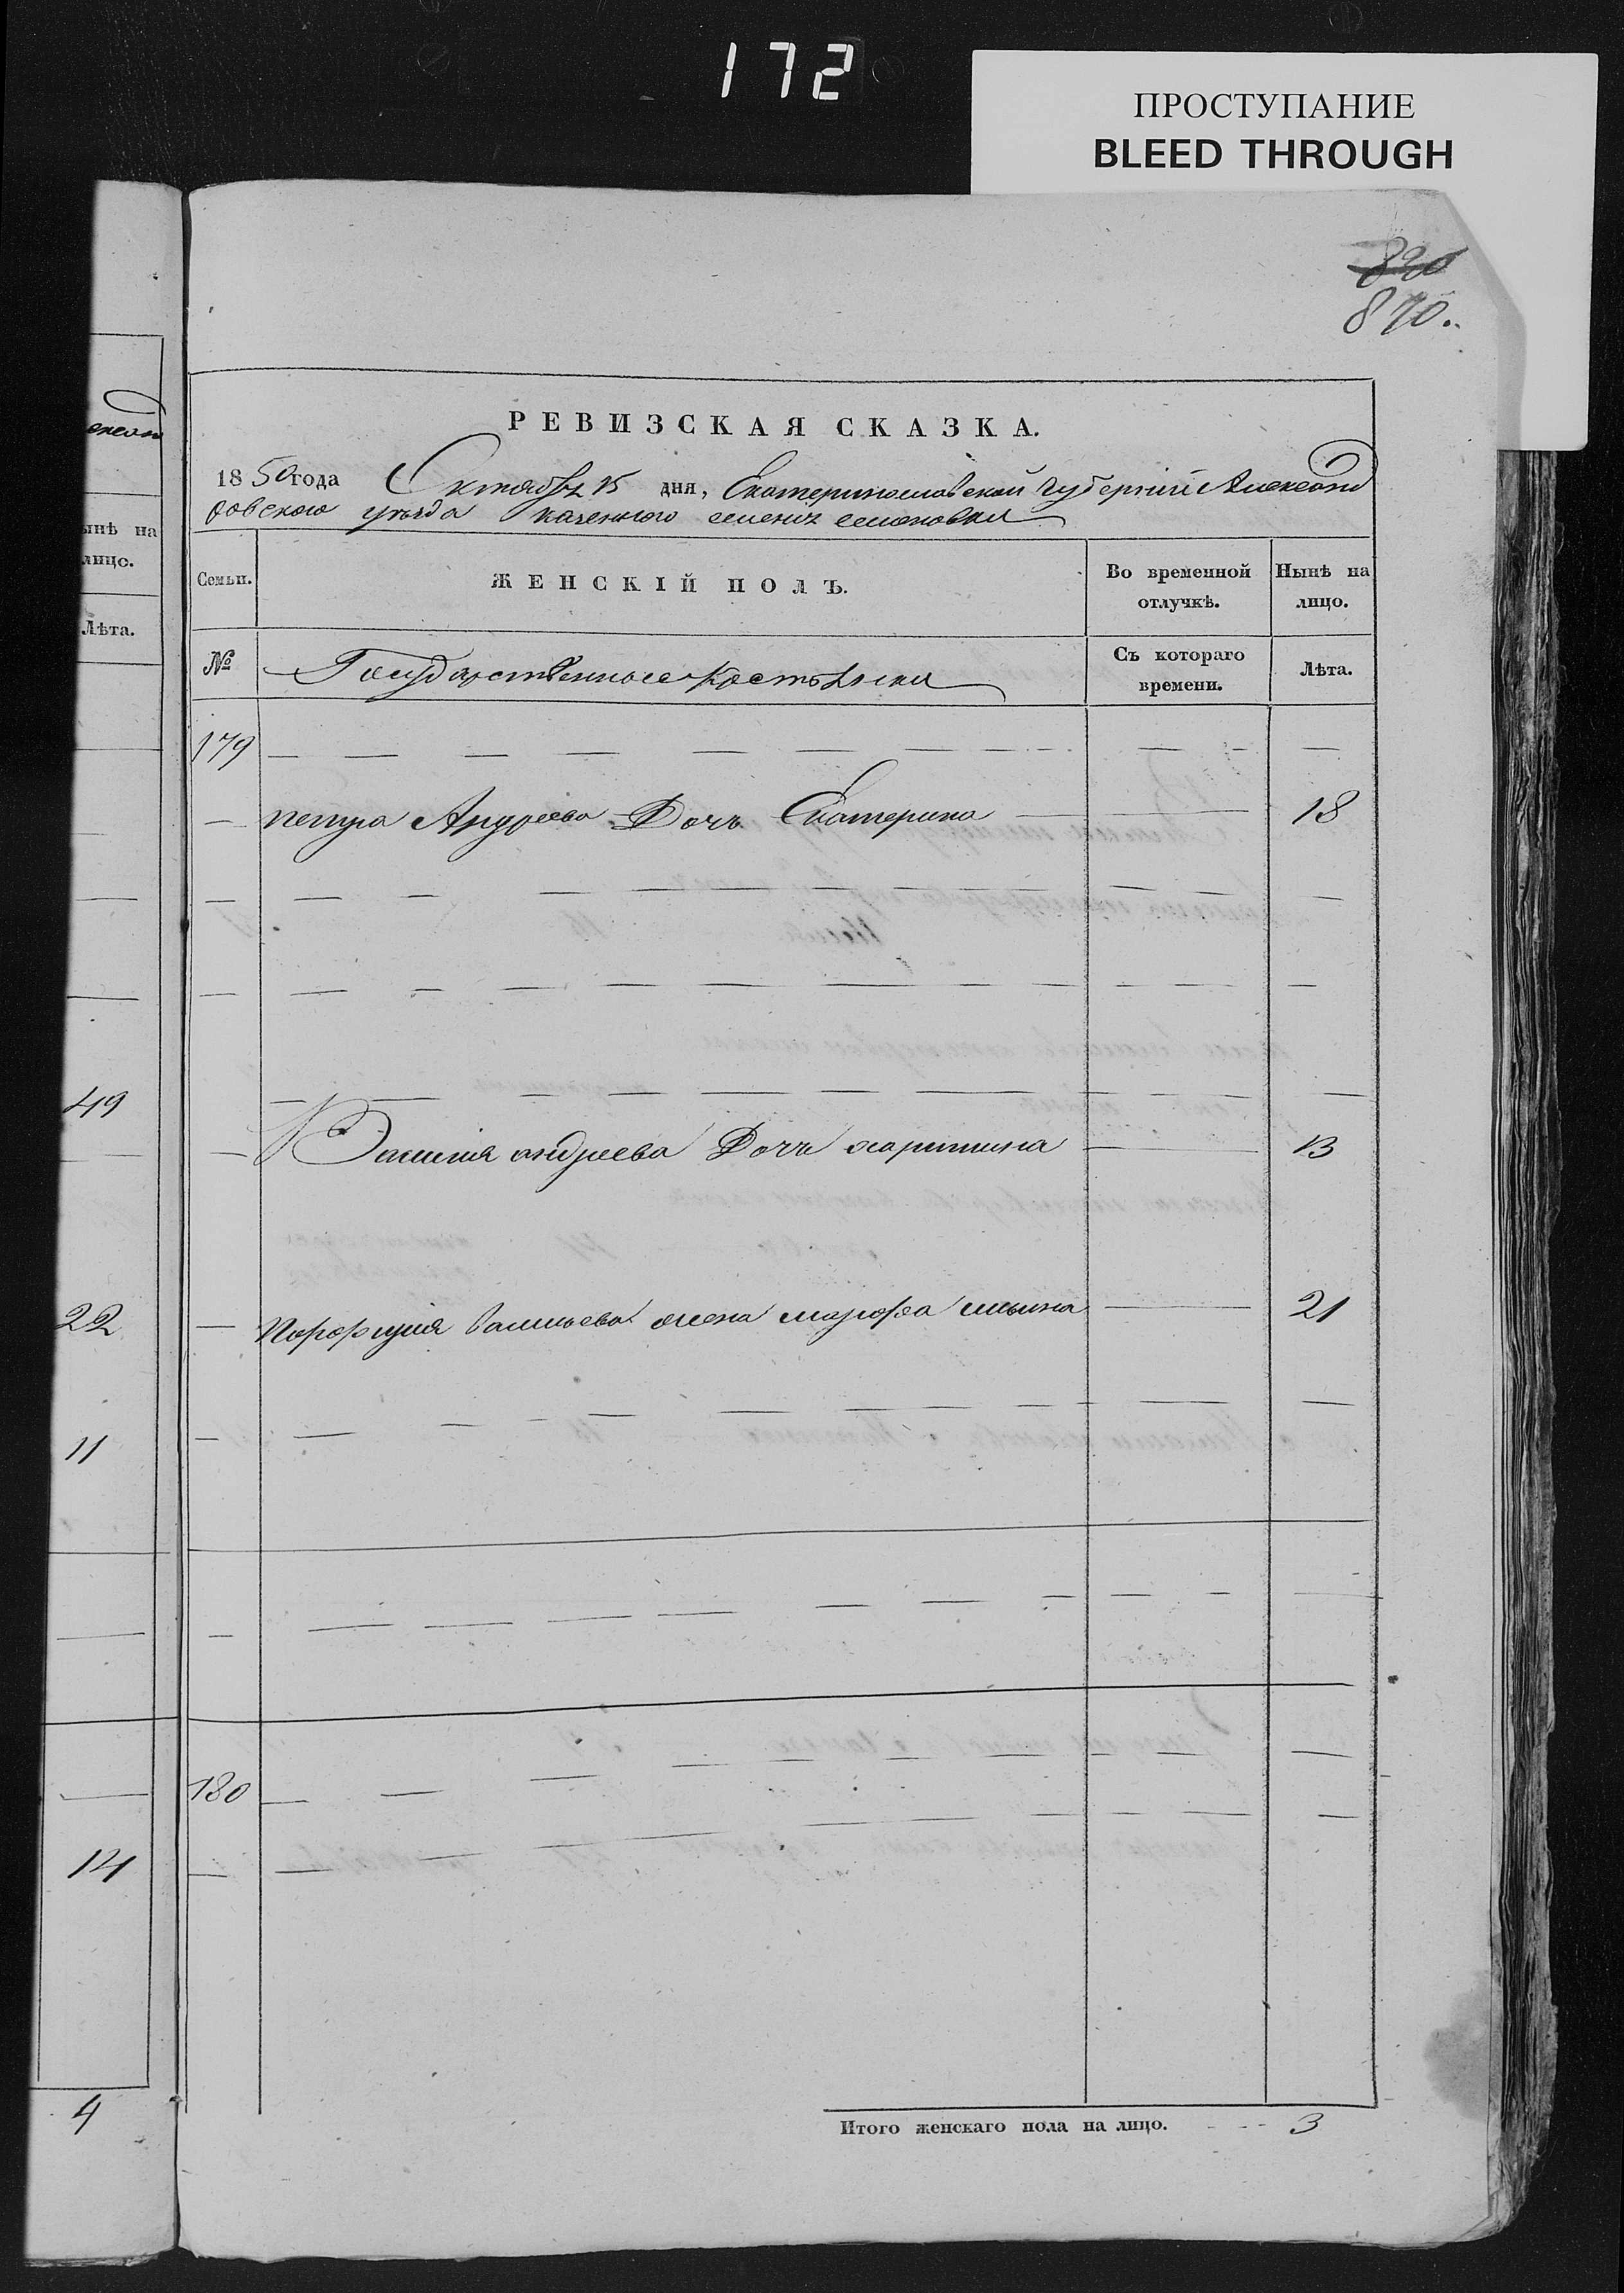 172
ПРОСТУПАНИЕ
BLEED THROUGH
830
870.
РЕВИЗСКАЯ СКАЗКА.
1850 года Октября 15 дня, Екатеринославской Губернии Александ
ровского уезда казенного селения семеновки
Семьи.
ЖЕНСКІЙ ПОЛЪ.
Во временной отлучкѣ.
Нынѣ на лицо.
№
Государственные Крестьянки
Съ котораго времени.
Лѣта.
179
петра Андреева Дочь Екатерина 18
андреева Дочь харитина 13
Порфирия Васильева жена марфа ильина 21
180
Итого женскаго пола на лицо. 3
ынѣ на
лицо.
Лѣта.
49
22
11
14
4